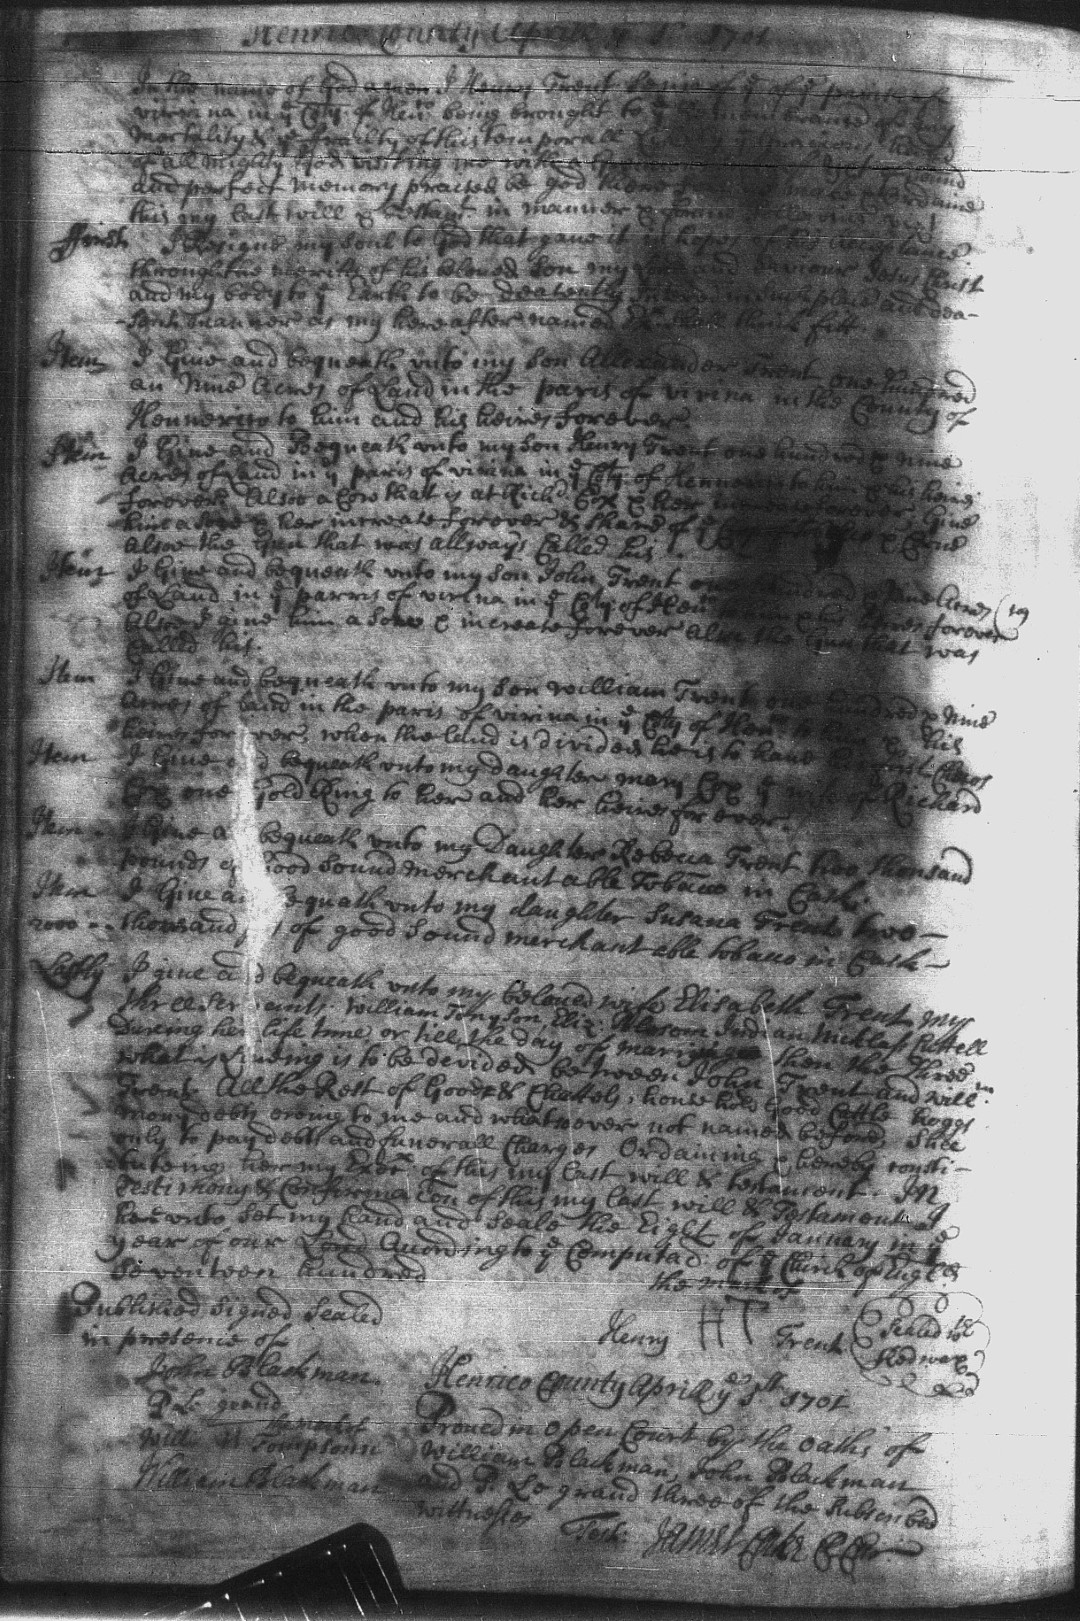 Henrico County Aprill ye 1st 1701
In the name of God amen I Henry Trent being of ye
virina in ye Cty of Hen being brought to ye
mortality & ye frailty of this temporall
of all mighty God visting me with a sound
and perfect memory praised be god therefore make & ordaine
this my last will & Testamt in manner & forme
ffirst I Resigne my soul to God that gave it in hopes of
through the meritts of his beloved Son my and Saviour Jesus Christ
and my body to ye Earth to be deacently Intered in such place and dea-
-sent manner as my hereafter named shall think fitt
Item I Give and bequeath unto my Son Allexander Trent one hundred
an Nine Acres of Land in the paris of virina in the County of
Hennerico to him and his heires forever
Item I Give and Bequeath unto my Son Henry Trent one hundred & Nine
acres of Land in ye paris of virina in ye Cty of Hennerico to him & his heires
forever Also a Cow that is at Richd Cox & her increase forever I give
him a & her increase forever & share of ye
alsoe the Gun that was allways Called his
Item I Give and bequeath unto my Son John Trent one hundred & Nine Acres (19
of Land in ye parris of virina in ye Cty of Hen to him & his heires forever
Also I give him a Sow & increase forever also the Gun that was
Called his
Item I Give and bequeath unto my Son William Trent one hundred & Nine
Acres of Land in the paris of virina in ye Cty of Hen to him & his
heires forever when the land is divided he is to have ye first Choos
Item I Give and bequeath unto my daughter mary Cox ye wife of Richard
Cox one Gold Ring to her and her heires for ever
Item I Give a bequeath unto my Daughter Rebecca Trent two thousand
pounds of Good Sound merchantable Tobacco in Cask
Item I Give an bequath unto my daughter Susana Trent two-
2000 -- thousand of good Sound merchantable tobacco in Cask-
Lastly I give and bequeath unto my beloved wife Elisabeth Trent my
three servants William Tompson Eliz: Indian
During her life time or till the day of marige then the three
what is Liveing is to be divided between John Trent and Willm
Trent All the Rest of Goods & Chattels, house hold Good Cattle hoggs
many debts oweing to me and whatsoever not named before
only to pay debts and funerall Charges Ordaining & hereby consti-
tuteing her my Exor of this my last will & testament In
Testimony & Confirmation of this my last will & Testament I
have unto Set my hand and Seale the Eight of January in ye
year of our Lord according to ye Computa of ye Church of Engl
Seventeen hundred
the mark of
Publised Signed Sealed
in presence of
Henry HT Trent (Sealed wt
Red wax)
John Blackman
P Le grand
the mark of
Will W Tompsonn
William Blackman
Henrico County Aprill ye 1st 1701
Proved in open Court by the oaths of
William Blackman, John Blackman
and P. Le grand three of the Subscribed
witnesses
Test James Cocke Cl Cur